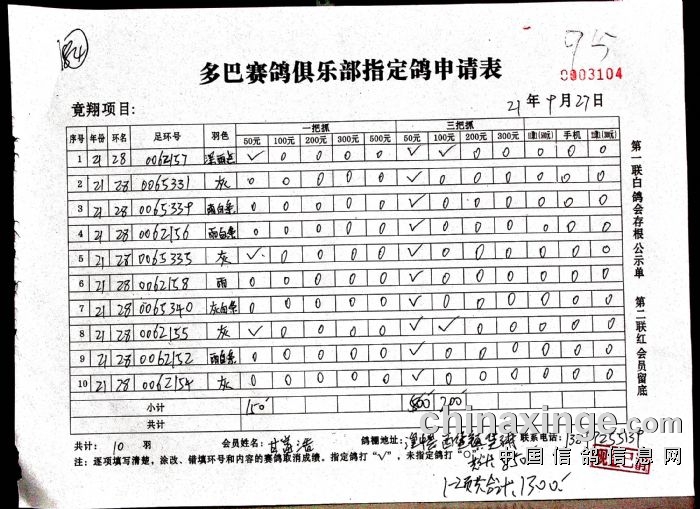 84
95
多巴赛鸽俱乐部指定鸽申请表
0003104
竟翔项目:
21年9月27日
序号 年份 环名 足环号 羽色 一把抓 三把抓
50元 100元 200元 300元 500元 50元 100元 200元 300元 手机
1 21 28 0062157 ✓ 0 0 0 0 ✓ ✓ 0 0 0 0 0
2 21 28 0065331 灰 0 0 0 0 0 ✓ 0 0 0 0 0 0
3 21 28 0065339 雨白条 0 0 0 0 0 ✓ 0 0 0 0 0 0
4 21 28 0062156 雨白条 0 0 0 0 0 ✓ 0 0 0 0 0 0
5 21 28 0065335 灰 ✓ 0 0 0 0 ✓ 0 0 0 0 0 0
6 21 28 0062158 雨 0 0 0 0 0 ✓ 0 0 0 0 0 0
7 21 28 0065340 灰白条 0 0 0 0 0 ✓ 0 0 0 0 0 0
8 21 28 0062155 灰 ✓ 0 0 0 0 ✓ ✓ 0 0 0 0 0
9 21 28 0062152 雨白条 0 0 0 0 0 ✓ 0 0 0 0 0 0
10 21 28 0062154 灰 0 0 0 0 0 ✓ 0 0 0 0 0 0
小计 150 500 200
共计
第一联白 鸽会存根 公示单 第二联红 会员留底
共计: 10 羽 会员姓名: 鸽棚地址: 联系电话:
注: 逐项填写清楚, 涂改、错填环号和内容的赛鸽取消成绩, 指定鸽打"√", 未指定鸽打"O"。
共计: 850
合计: 1300
chinaxinge.com
中国信鸽信息网